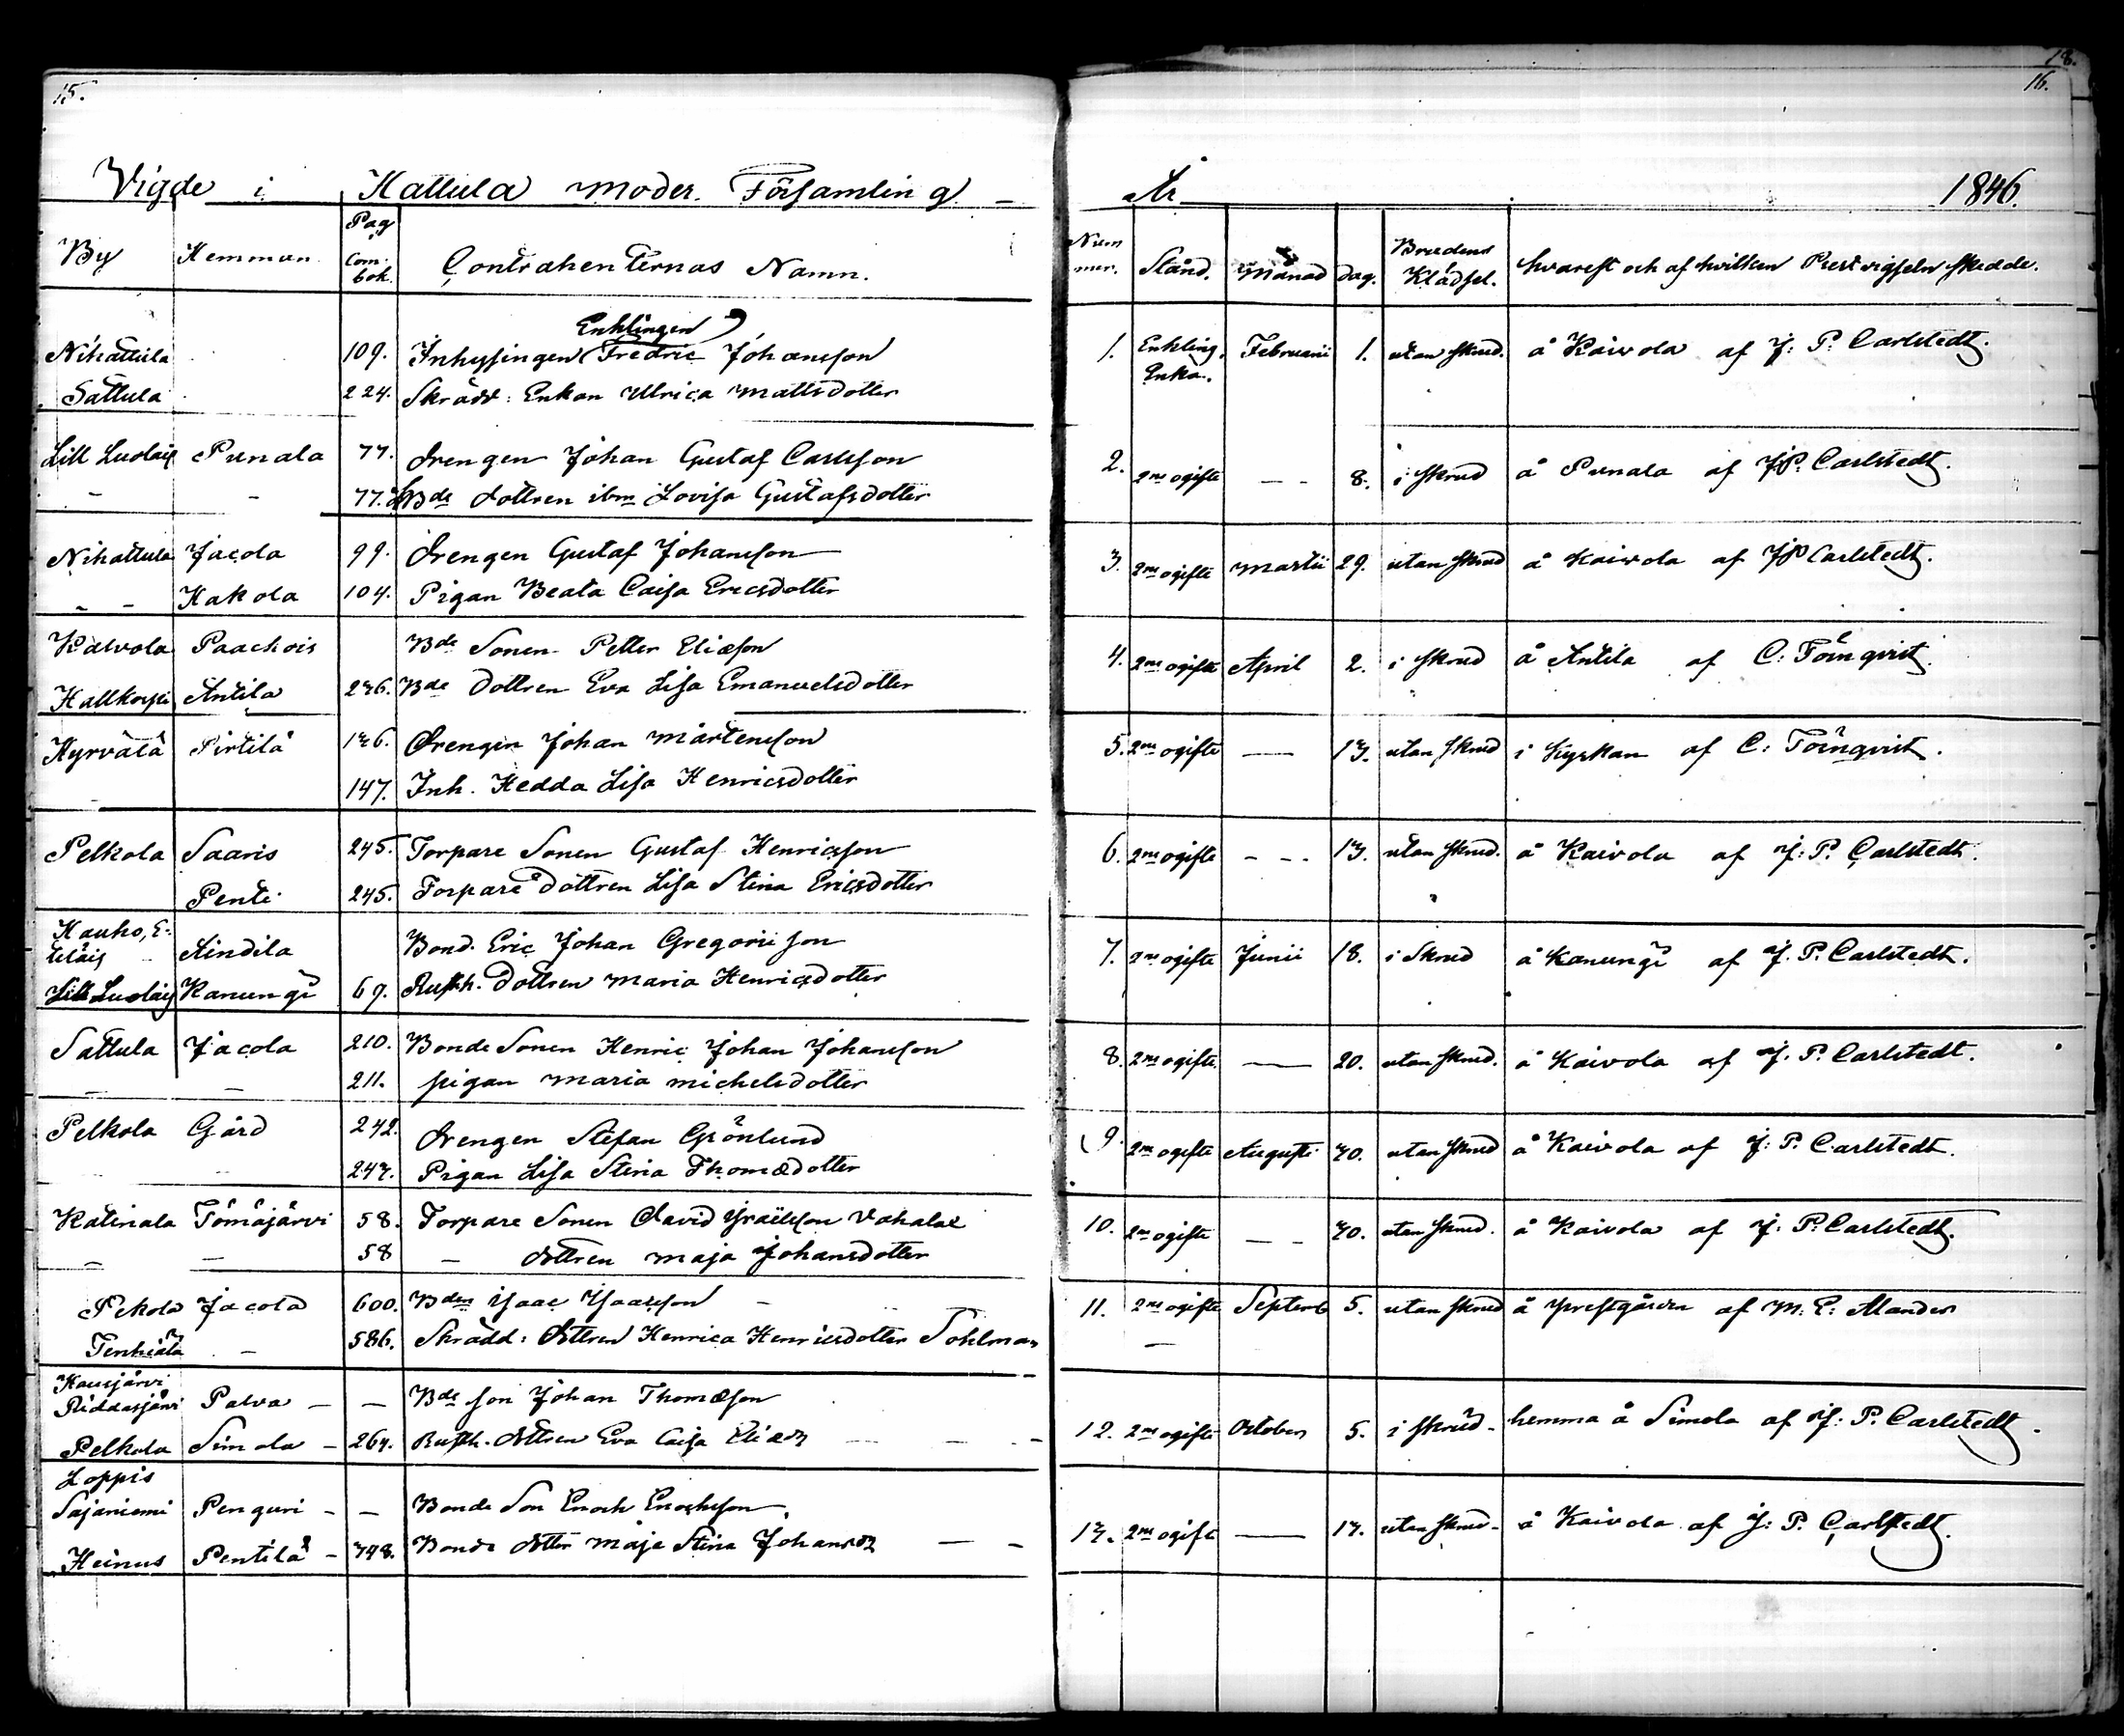 15.
Vigde i Hattula Moder Församling
By Hemman Pag Com: bok. Contrahenternas Namn.
Enklingen
Nihattula 109. Inhysingen Fredric Johansson
Sattula 224. Skrädd: Enkan Ullrica Mattsdotter
Lill Luolais Punala 77. Drengen Johan Gustaf Carlsson
– – 77. Bde dottren ibm Lovisa Gustafsdotter
Nihattula Jacola 99. Drengen Gustaf Johansson
– – Kakola 104. Pigan Beata Caisa Ericsdotter
Kalvola Paachois Bde Sonen Petter Eliæson
Hattkorpi Antila 236. Bde Dottren Eva Lisa Emanuelsdotter
Hyrvälä Pirtilä 136. Drengen Johan Mårtensson
147. Inh. Hedda Lisa Henricsdotter
Pelkola Saaris 245. Torpare Sonen Gustaf Henricsson
Penti 245. Torpare Dottren Lisa Stina Ericsdotter
Hauho, E-
teläis Aindila Bond. Eric Johan Gregorii son
Lill Luolais Kanungi 69. Rusth. Dottren Maria Henricsdotter
Sattula Jacola 210. Bonde Sonen Henric Johan Johansson
– – 211. pigan Maria Michelsdotter
Pelkola Gård 242. Drengen Stefan Grönlund
– – 243. Pigan Lisa Stina Thomædotter
Katinala Tömäjärvi 58. Torpare Sonen David Israëlsson Vahalax
– – 58 – dottren Maja Johansdotter
Pekola Jacola 600. Bden Isaac Isaacsson –
Tenhiälä – 586. Skrädd: dottren Henrica Henricsdotter Sohlman
Hausjärvi
Riddasjärvi Palva – – Bde son Johan Thomæson
Pelkola Simola – 264. Rusth. dottren Eva Caisa Eliæ
Loppis
Sajaniemi Penguri – – Bonde Son Enoch Enochsson
Heinus Pentilä – 348. Bonde dotter Maja Stina Johans
18.
16.
År 1846.
Num mer. Stånd. Månad dag. Brudens Klädsel. hvarest och af hvilken Prest vigseln skedde.
1. Enkling. Enka. Februarii 1. utan skrud. å Kaivola af J: P: Carlstedt.
2. 2ne ogifte – – 8. i skrud å Punala af JP. Carlstedt.
3. 2ne ogifte Martii 29. utan skrud å Kaivola af JP Carlstedt.
4. 2ne ogifte April 2. i skrud å Antila af C: Törnqvist.
5. 2ne ogifte – 13. utan skrud i Kyrkan af C: Törnqvist.
6. 2ne ogifte – – 13. utan skrud. å Kaivola af J: P. Carlstedt.
7. 2ne ogifte Junii 18. i Skrud å Kanungi af J. P. Carlstedt.
8. 2ne ogifte – 20. utan skrud. å Kaivola af J. P. Carlstedt.
9. 2ne ogifte Augusti 30. utan skrud å Kaivola af J: P. Carlstedt.
10. 2ne ogifte – – 30. utan skrud. å Kaivola af J: P. Carlstedt.
11. 2ne ogifte Septemb 5. utan skrud å prestgården af M: E: Alander
12. 2ne ogifte October 5. i skrud - hemma å Simola af J: P. Carlstedt.
13. 2ne ogift – 13. utan skrud - å Kaivola af J: P. Carlstedt.